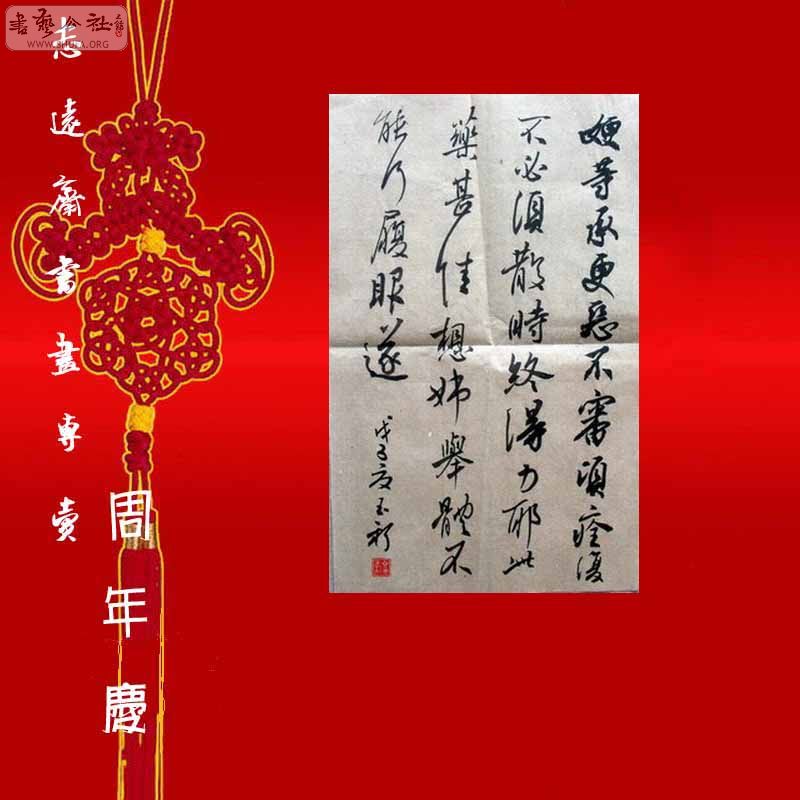 書藝公社
WWW.SHUFA.ORG
志遠齋書畫專賣
周年慶
嫂等承更惡不審頃痊復
不必須散時終得力耶此
藥甚佳想姊舉體不
能行履眼遂
戊子夏玉新